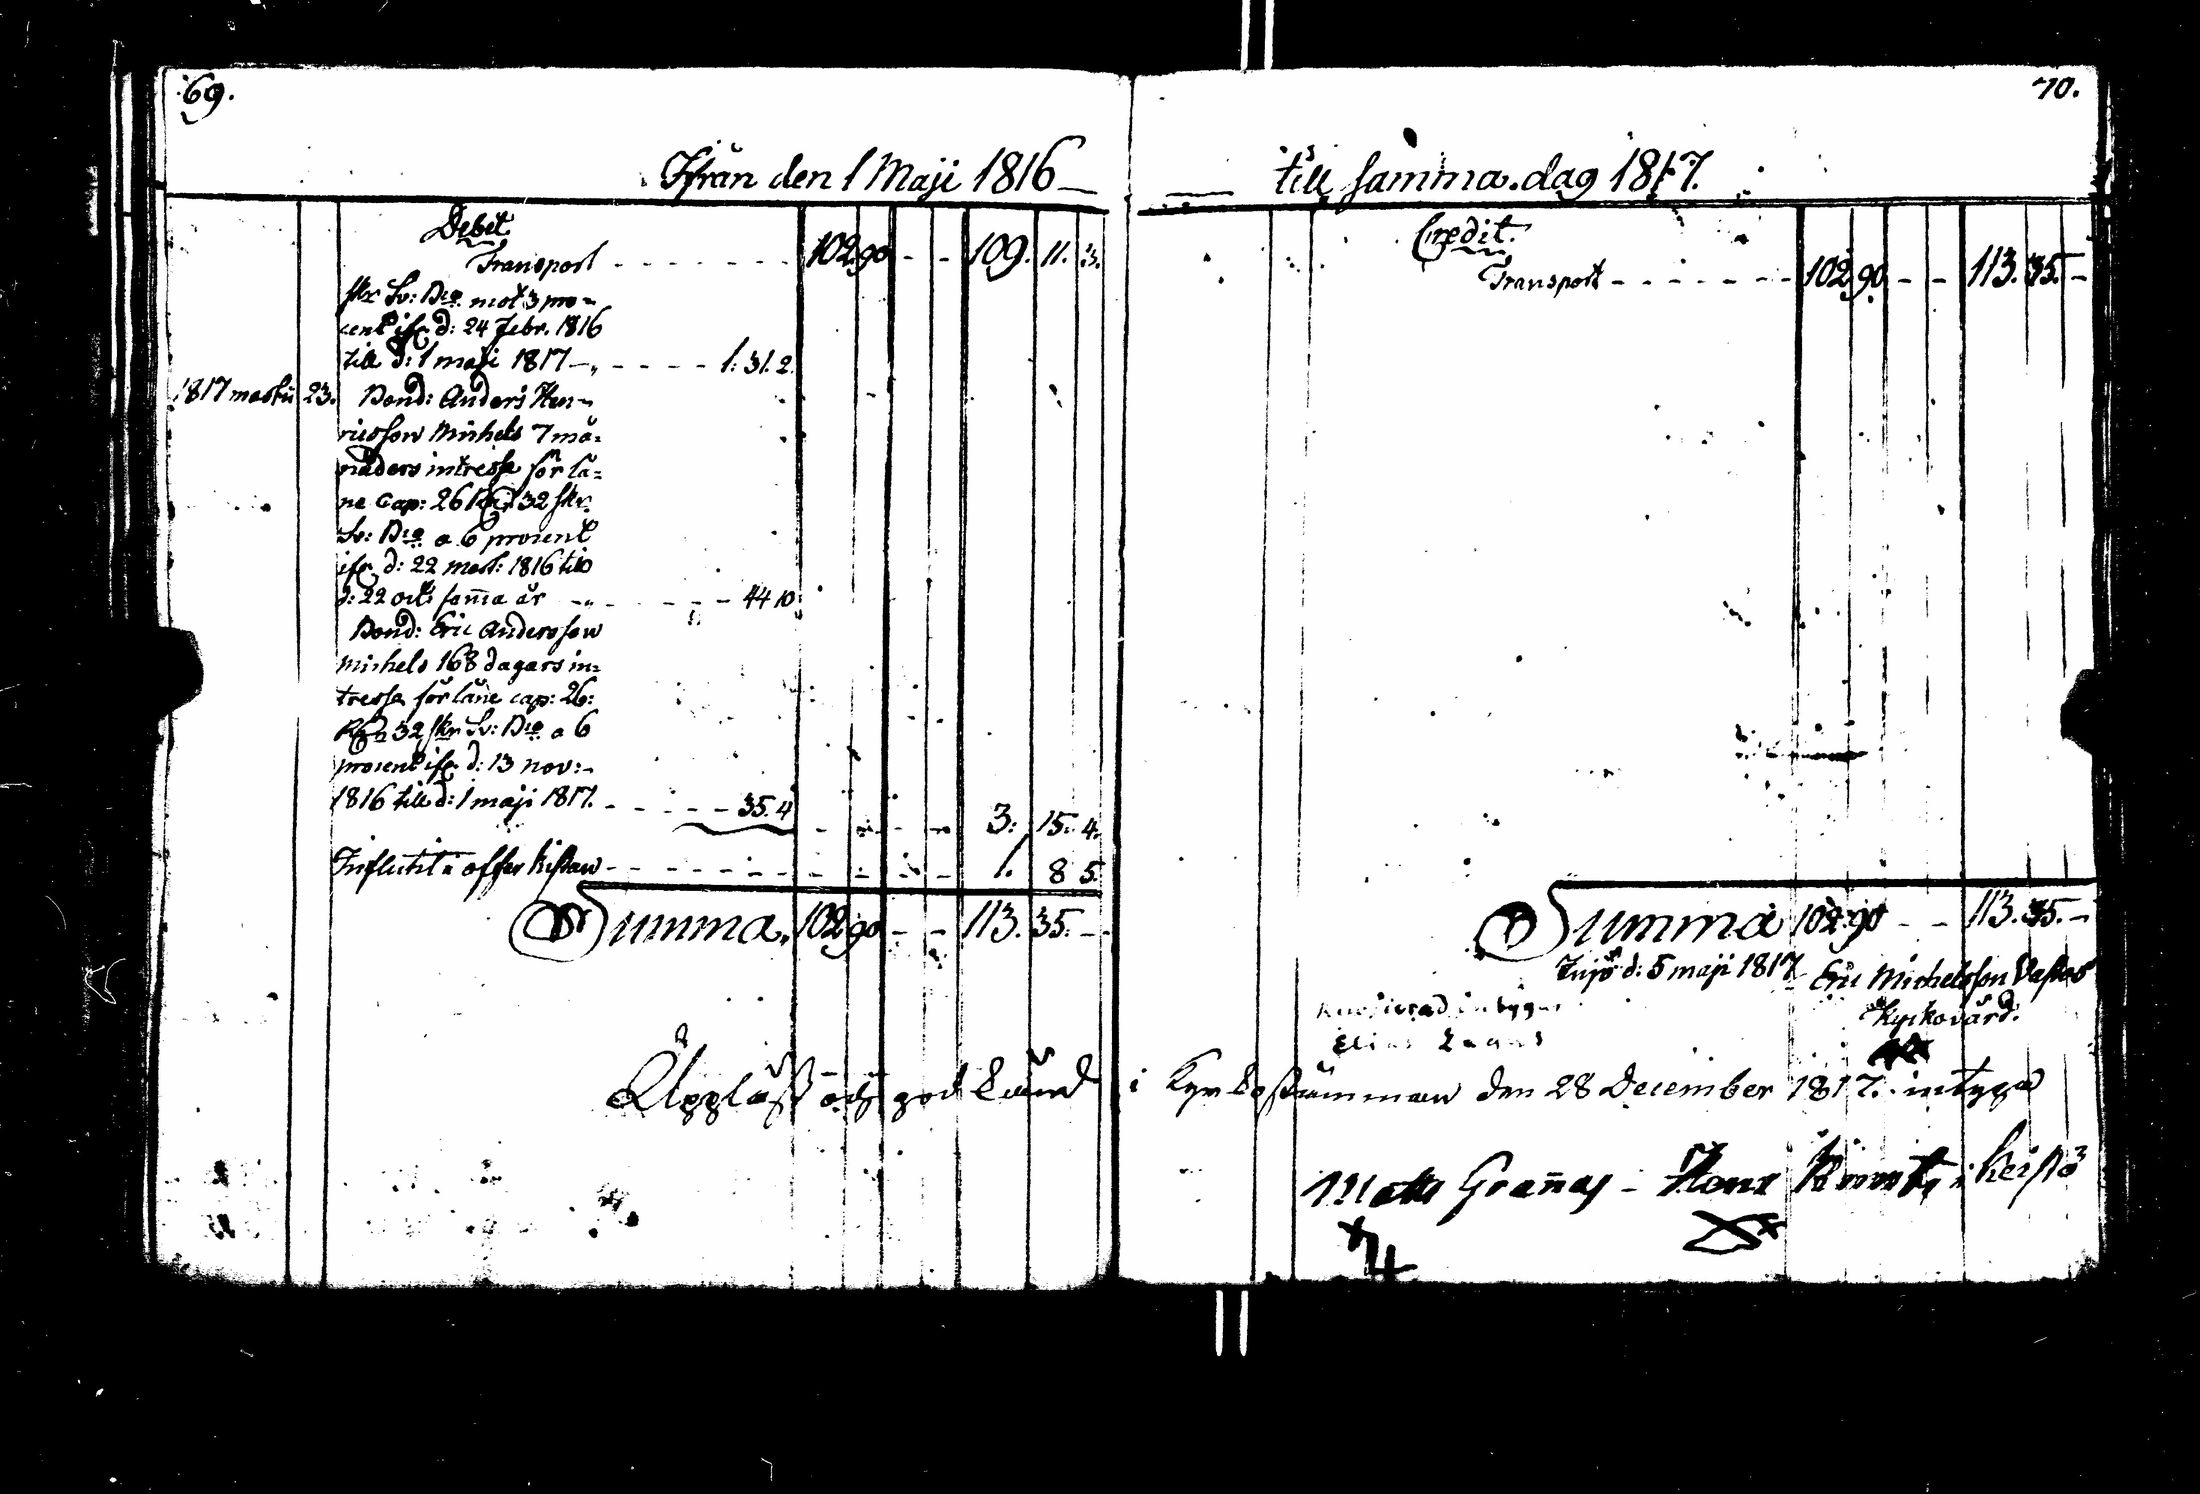 69.
Ifrån den 1 Maji 1816
Debit
Transport - - - - - - - 102 90 - - 109. 11. 3.
skr Sv: Bco mot 3 pro-
cent ifr. d: 24 Febr. 1816
till d: 1 maji 1817 - - - - - 1. 31. 2.
1817 martii 23. Bond: Anders Hen-
ricsson Michels 7 må-
naders intresse för lå-
ne cap: 26 Rd 32 skr.
Sv: Bco a 6 procent
ifr. d: 22 mart: 1816 till
d: 22 oct: sam̄a år - - - - - 44 10
Bond: Eric Andersson
Michels 168 dagars in-
tresse för låne cap: 26:
Rd 32 skr Sv: Bco a 6
procent ifr. d: 13 nov:-
1816 till d: 1 maji 1817. - - - - - 35. 4
- - - - 3: 15. 4.
Influtit i offer kistan - - - - - - - - - - 1. 8 5.
Summa. 102 90 - - 113. 35. -
Uppläst och god känd
70.
till samma dag 1817.
Credit.
Transport - - - - - - 102 90 - - 113. 35. -
Summa 102 90 - - 113. 35. -
d: 5 maji 1817 Eric Michelsson
Kyrkovärd.
intygar
Elias
i Kyrkostämman den 28 December 1817. intyga
Matts Gran̄as - Hans i